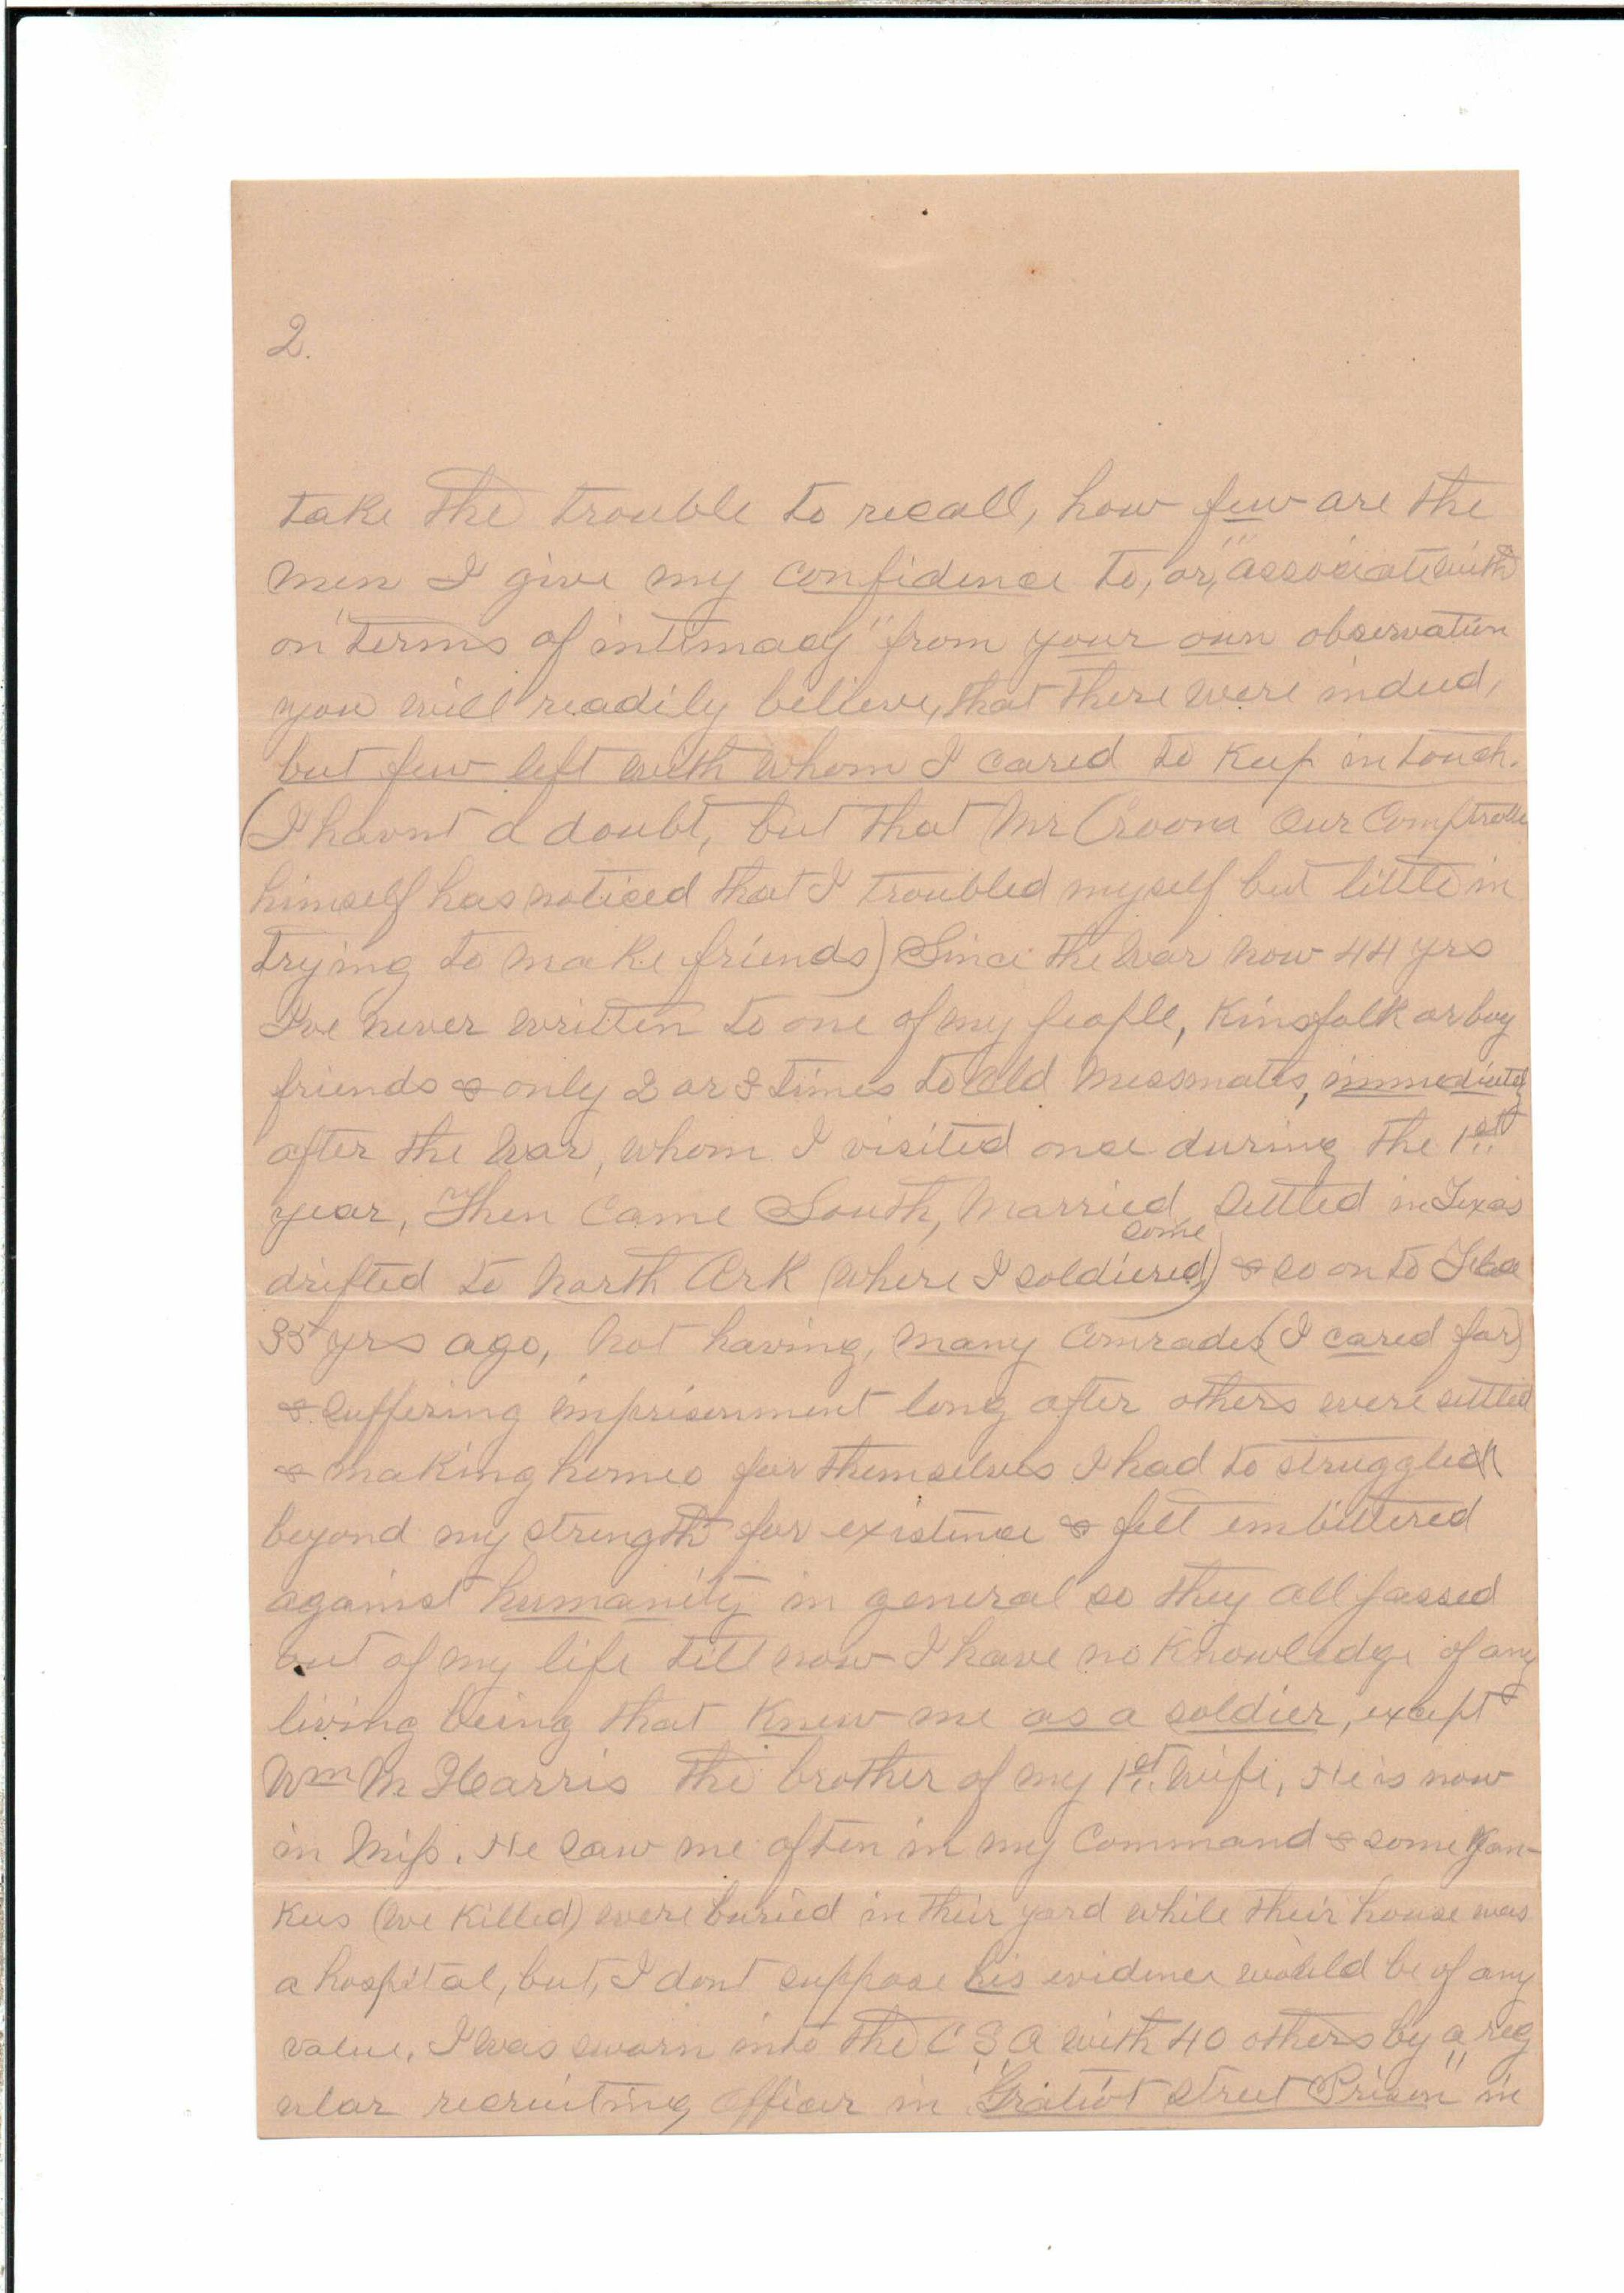 2.
take the trouble to recall, how few are the
men I give my confidence to, or, "associate with
on "terms of intimacy" from your own observation
you will readily believe, that there were indeed,
but few left with whom I cared to keep in touch.
(I havnt a doubt, but that Mr Croom Our Comptroller
himself has noticed that I troubled myself but little in
trying to make friends) Since the War now 44 yrs
I've never written to one of my people, Kinsfolk or boy
friends & only 2 or 3 times to old messmates, immediately
after the War, whom I visited once during the 1st
year, Then came South, Married, Settled in Texas
drifted to North Ark (where I soldiered some) & so on to Fla
35 yrs ago, not having, many Comrades (I cared for)
& suffering imprisonment long after others were settled
& making homes for themselves I had to struggle
beyond my strength for existence & felt embittered
against humanity in general so they all passed
out of my life till now I have no knowledge of any
living being that knew me as a soldier, except
Wm M Harris the brother of my 1st. Wife, He is now
in Miss. He saw me often in my Command & some Yan-
kees (we killed) were buried in their yard while their house was
a hospital, but, I dont suppose his evidence would be of any
value, I was sworn into the C S A with 40 others by a reg
ular recruiting officer in "Gratiot Street Prison" in